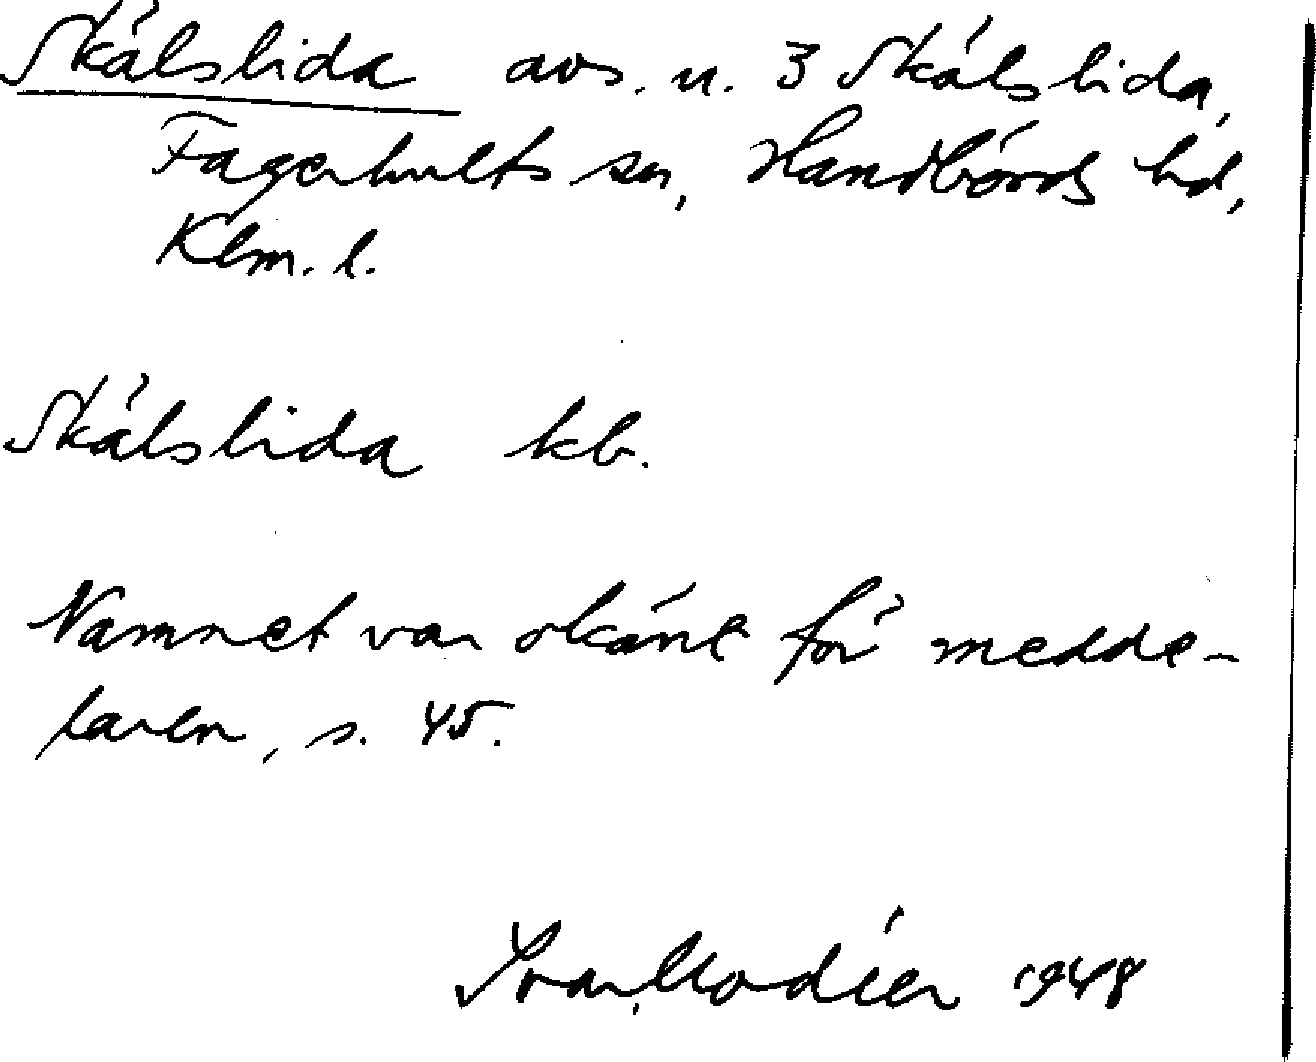 Skälslida avs. u. 3 Skälslida,
Fagerhults sn, Handbörds hd,
Klm. l.
Skälslida kb.
Namnet var okänt för medde-
laren, s. 45.
Ivar Modéer 1948